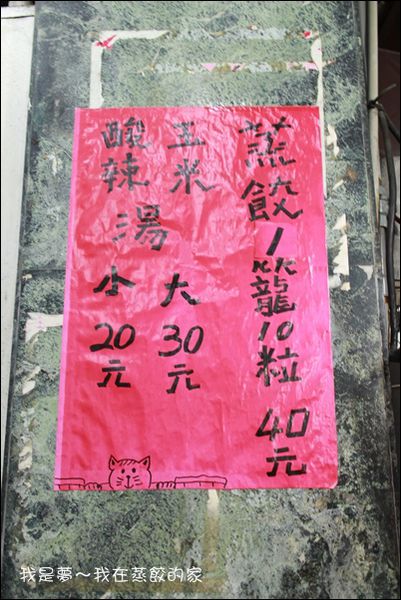 蒸餃1籠10粒 40元
玉米
酸辣
湯
大30元
小20元
我是夢～我在蒸餃的家